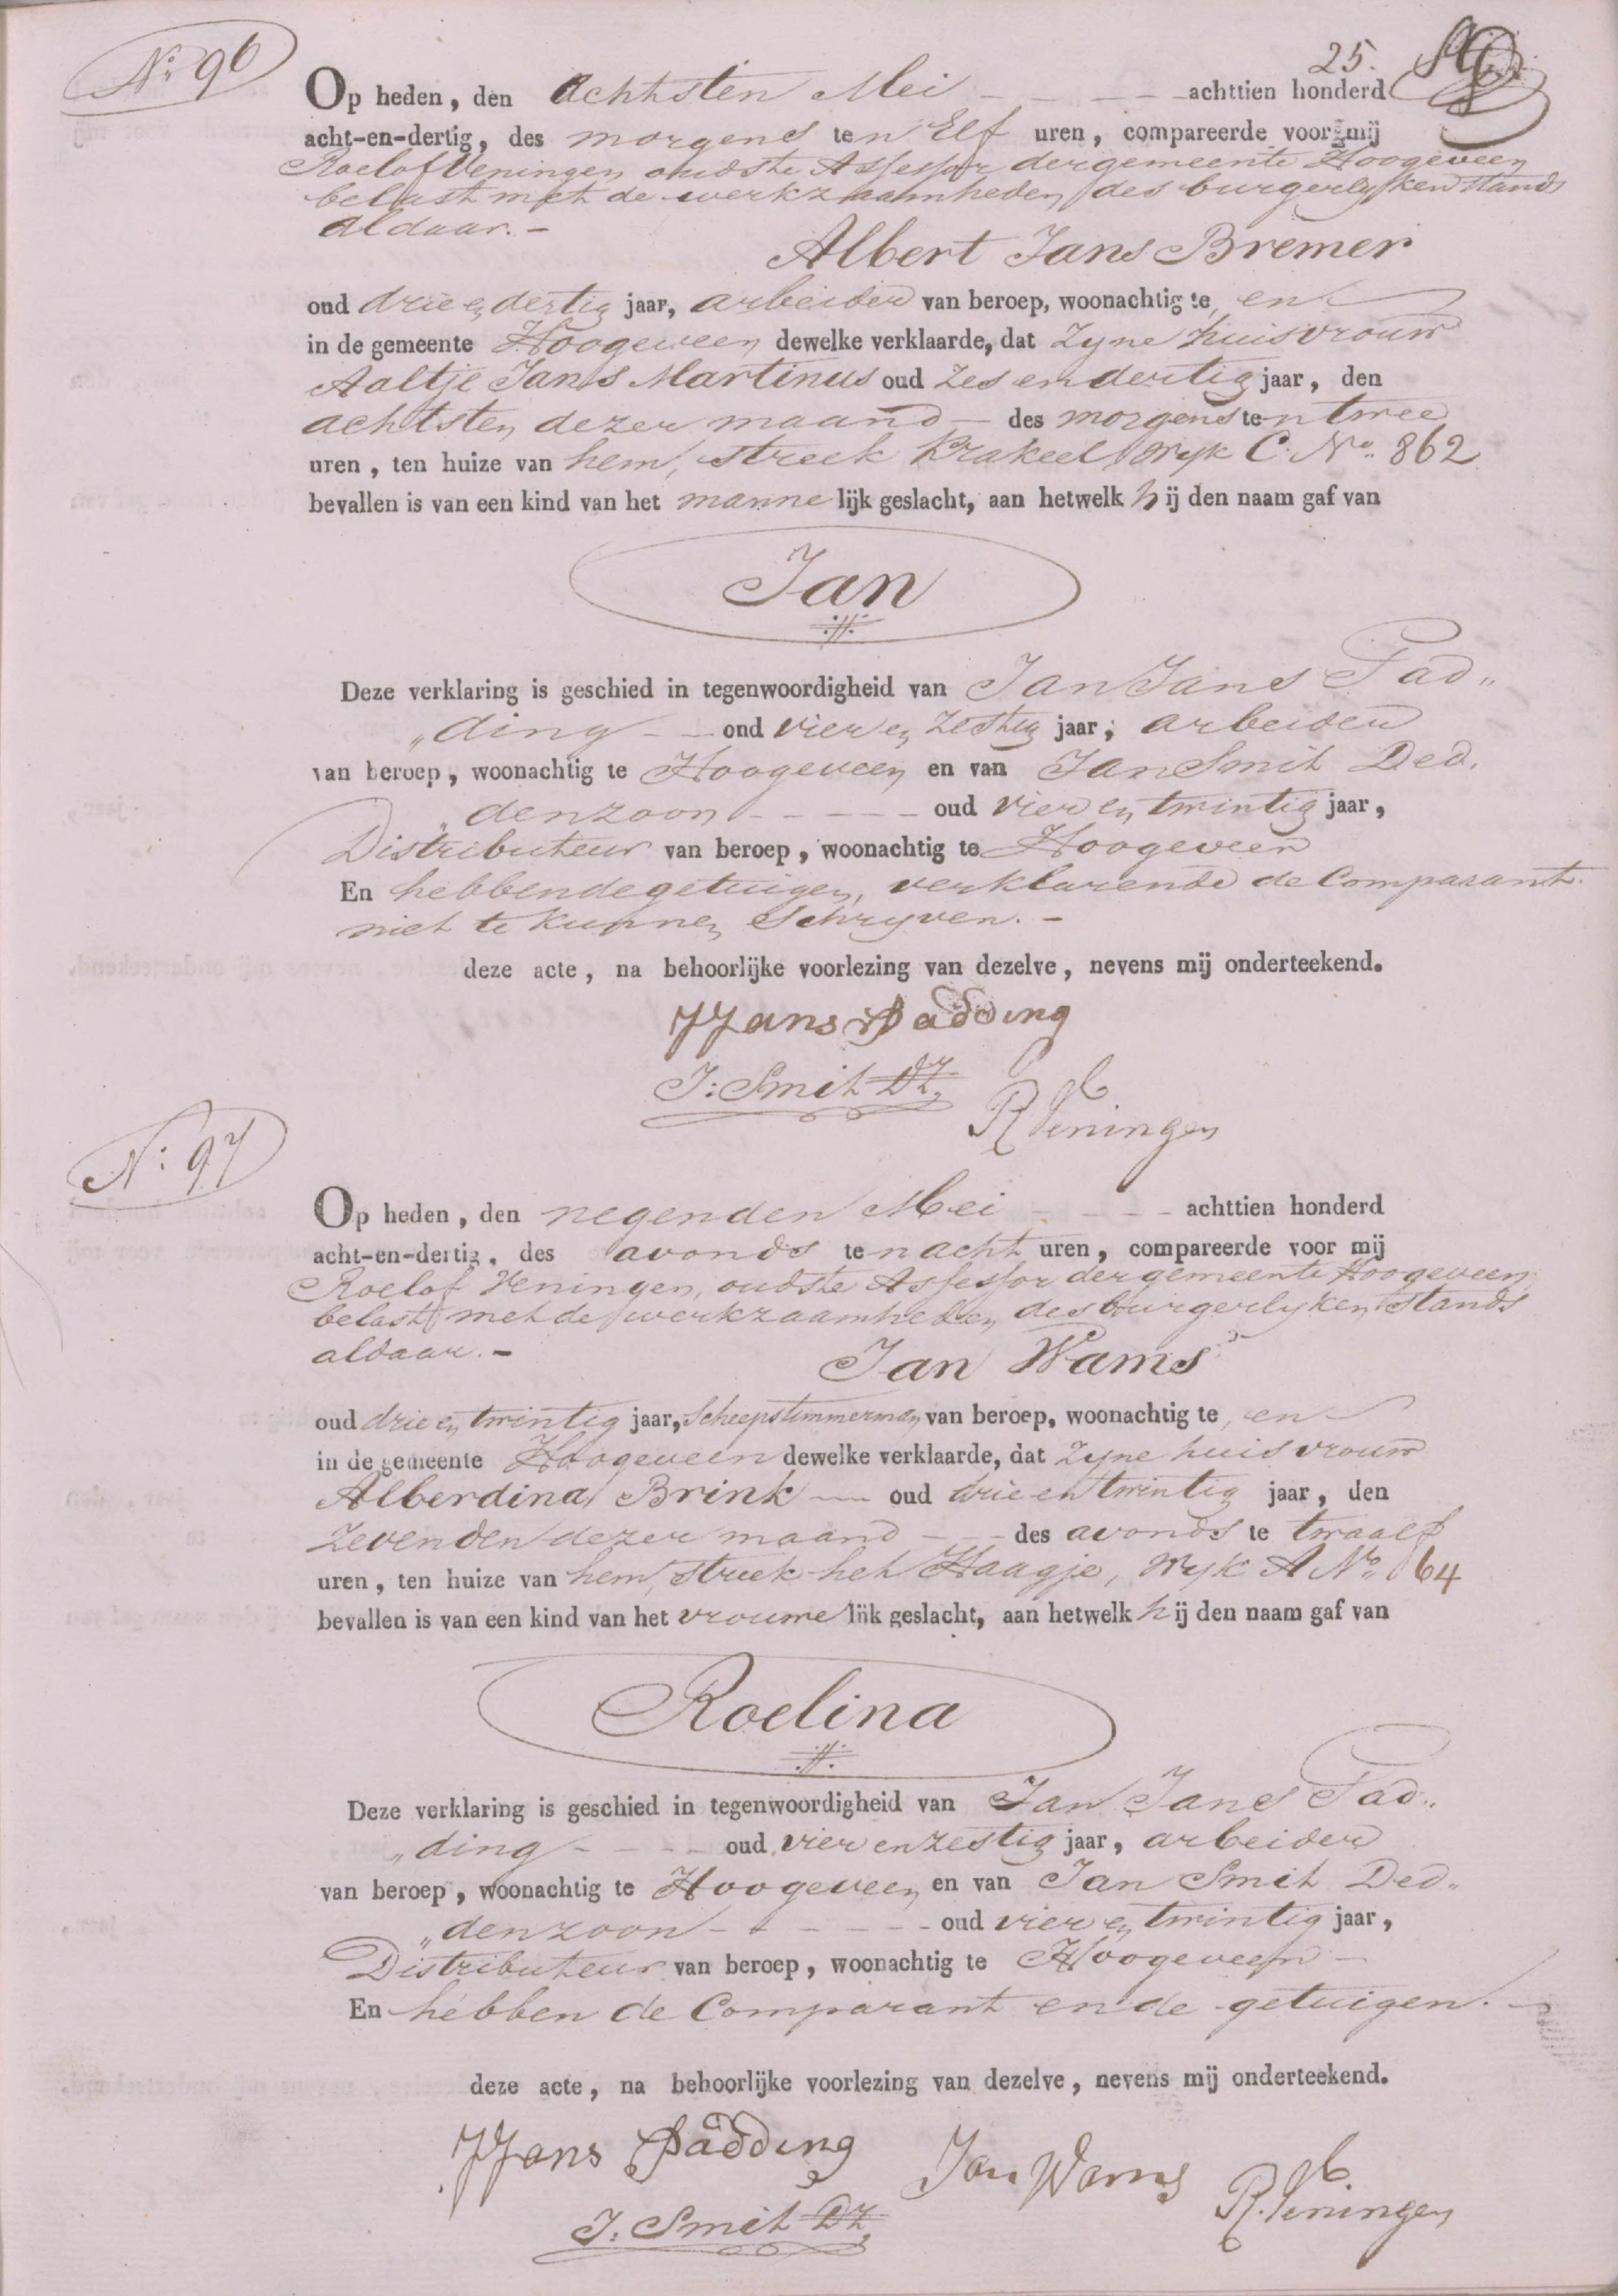 25.
No. 96
Op heden, den achtsten Mei - - - achttien honderd
acht-en-dertig, des morgens ten Elf uren, compareerde voor mij
Roelof Veningen oudste Assessor der gemeente Hoogeveen
belast met de werkzaamheden des burgerlyken stands
aldaar. -
Albert Jans Bremer
oud drie en dertig jaar, arbeider van beroep, woonachtig te, en
in de gemeente Hoogeveen dewelke verklaarde, dat zyne huisvrouw
Aaltje Jans Martinus oud zes en dertig jaar, den
achtsten dezer maand - des morgens ten twee
uren, ten huize van hem, streek Krakeel Wyk C. No. 862
bevallen is van een kind van het mannelijk geslacht, aan hetwelk hij den naam gaf van
Jan
Deze verklaring is geschied in tegenwoordigheid van Jan Jans Pad„
„ding - - oud vier en zestig jaar, arbeider
van beroep, woonachtig te Hoogeveen en van Jan Smit Ded„
„denzoon - - - - - oud vier en twintig jaar,
Distributeur van beroep, woonachtig te Hoogeveen
En hebbende getuigen, verklarende de Comparant
niet te kunnen Schryven. -
deze acte, na behoorlijke voorlezing van dezelve, nevens mij onderteekend.
JJans Padding
J: Smit DZ.
R Veningen
No. 97
Op heden, den negenden Mei - - - - achttien honderd
acht-en-dertig, des avonds ten acht uren, compareerde voor mij
Roelof Veningen, oudste Assessor der gemeente Hoogeveen
belast met de werkzaamheden des burgerlyken Stands
aldaar. -
Jan Wams
oud drie en twintig jaar, Scheepstimmerman van beroep, woonachtig te, en
in de gemeente Hoogeveen dewelke verklaarde, dat zyne huisvrouw
Alberdina Brink - oud drie en twintig jaar, den
zevenden dezer maand - - des avonds te twaalf
uren, ten huize van hem, streek het Haagje, Wyk A No. 64
bevallen is van een kind van het vrouwelijk geslacht, aan hetwelk hij den naam gaf van
Roelina
Deze verklaring is geschied in tegenwoordigheid van Jan Jans Pad„
„ding - - - - oud vier en zestig jaar, arbeider
van beroep, woonachtig te Hoogeveen en van Jan Smit Ded„
„denzoon - - - - - - oud vier en twintig jaar,
Distributeur van beroep, woonachtig te Hoogeveen -
En hebben de Comparant en de getuigen. -
deze acte, na behoorlijke voorlezing van dezelve, nevens mij onderteekend.
JJans Padding
Jan Wams
R. Veningen
J. Smit DZ.